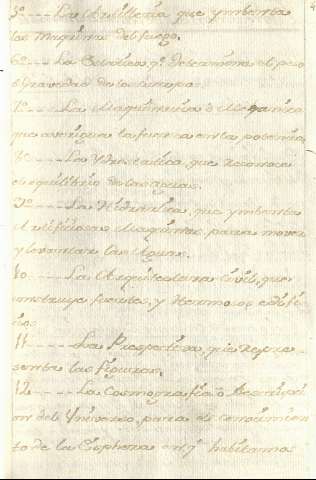 5º --- La Artilleria que ymbenta
las Maquinas del fuego.
6º --- La Estatica qe. determina el peso
ô Gravedad de los
7ª --- La Maquinaria ô Mecanica
que averigua la fuerza en la potencia
8ª --- La Ydrostatica, que reconoce
el equilibrio de las aguas.
9º --- La Hidraulica, que ymbenta
Artificiosas Maquinas, para mover
y levantar las Aguas.
10 --- La Arquitectura Civil, que
construye fuertes, y Hermosos edifi
cios
11 --- La Prespectiva, que Repre
senta las figuras.
12 --- La Cosmografia ô Descripci
on del Universo, para el conocimien
to de la Esphera en qe. habitamos